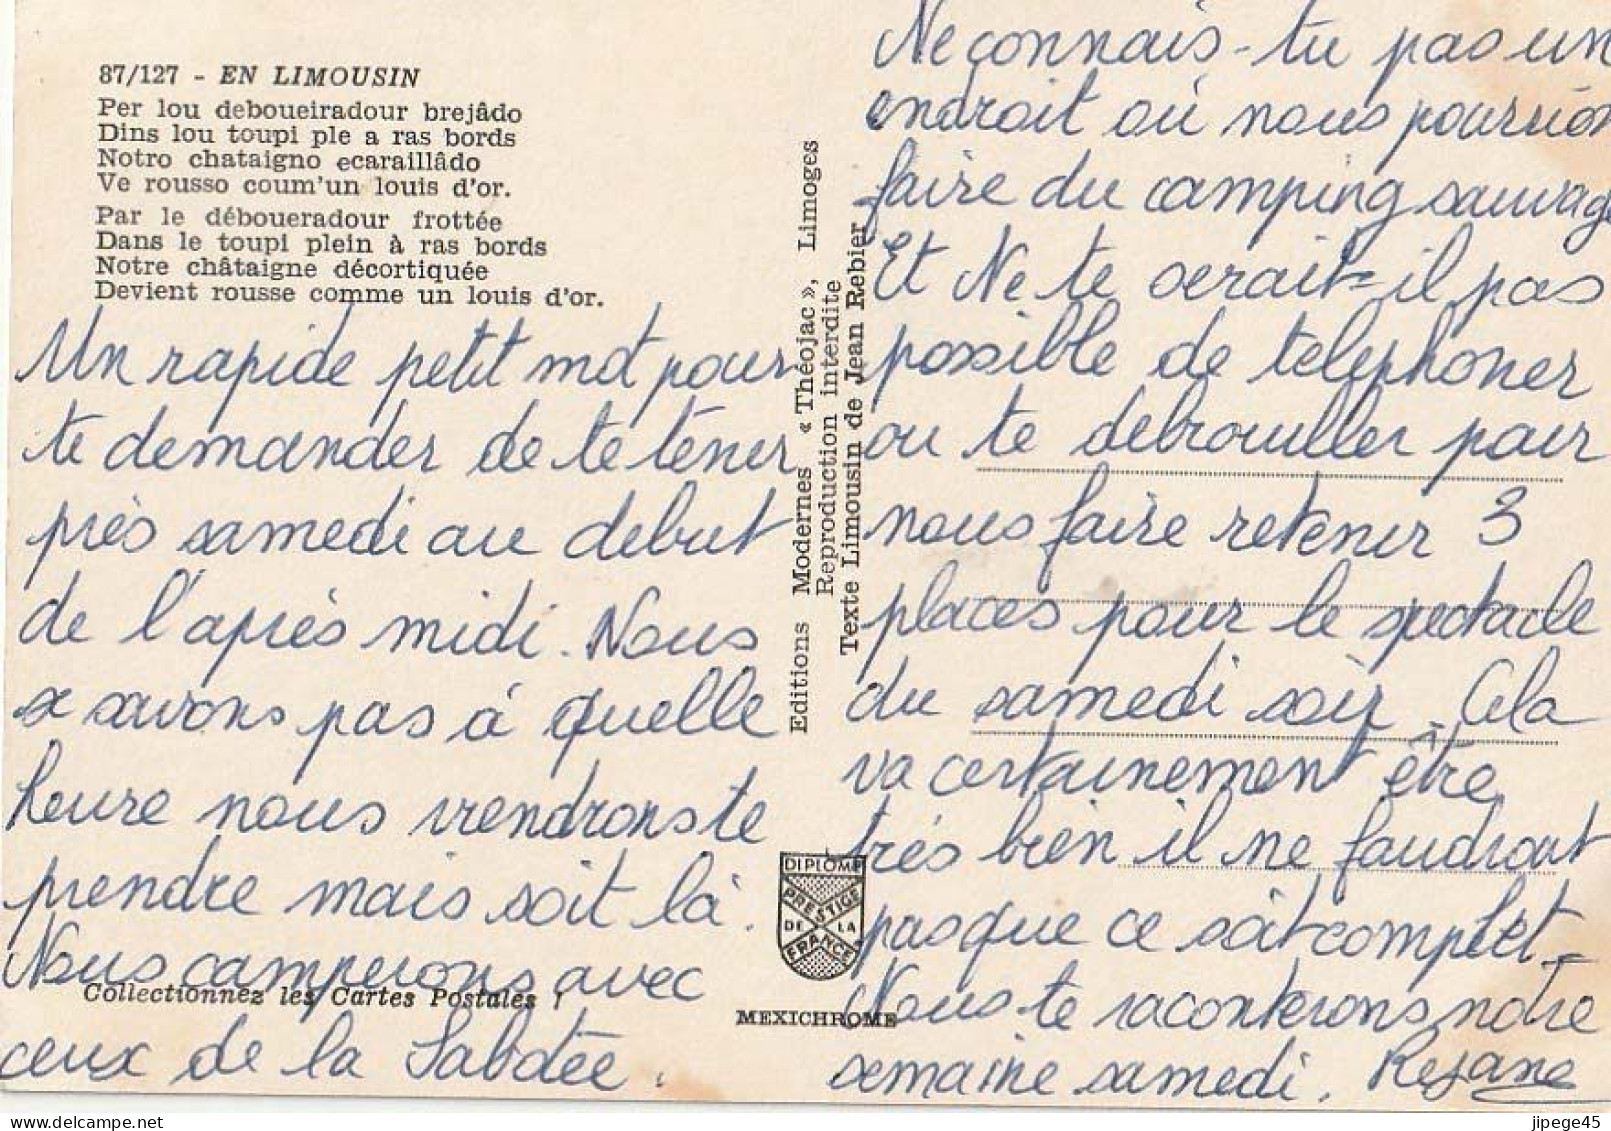 87/127 - EN LIMOUSIN
Per lou deboueiradour brejâdo
Dins lou toupi ple a ras bords
Notro chataigno ecaraillâdo
Ve rousso coum'un louis d'or.
Par le déboueradour frottée
Dans le toupi plein à ras bords
Notre châtaigne décortiquée
Devient rousse comme un louis d'or.
Un rapide petit mot pour
te demander de te tenir
près samedi au debut
de l'après midi. Nous
savons pas à quelle
heure nous viendrons te
prendre mais soit là.
Nous camperons avec
Collectionnez les Cartes Postales !
ceux de la
Editions Modernes « Théojac », Limoges
Reproduction interdite
Texte Limousin de Jean Rebier
DIPLOME
PRESTIGE
DE LA
FRANCE
MEXICHROME
Ne connais-tu pas un
endroit où nous pourrion
faire du camping sauvage
Et Ne te serait-il pas
possible de telephoner
ou te debrouiller pour
nous faire retenir 3
places pour le spectacle
du samedi soir. Cela
va certainement être
très bien il ne faudrait
pas que ce soit complet.
Nous te raconterons notre
semaine samedi. Rejane
jipege45